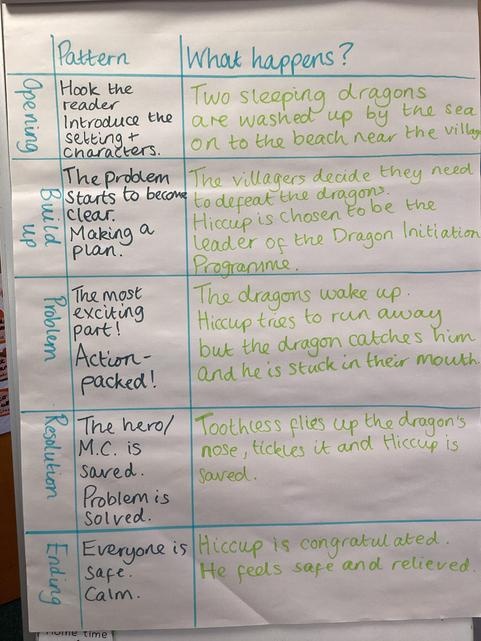 Pattern
What happens?
Opening
Hook the
reader
Introduce the
setting +
characters.
Two sleeping dragons
are washed up by the sea
on to the beach near the village
Build
up
The problem
starts to become
clear.
Making a
plan.
The villagers decide they need
to defeat the dragons.
Hiccup is chosen to be the
leader of the Dragon Initiation
Programme.
Problem
The most
exciting
part!
Action-
packed!
The dragons wake up.
Hiccup tries to run away
but the dragon catches him
and he is stuck in their mouth.
Resolution
The hero/
M.C. is
saved.
Problem is
solved.
Toothless flies up the dragon's
nose, tickles it and Hiccup is
saved.
Ending
Everyone is
safe.
Calm.
Hiccup is congratulated.
He feels safe and relieved.
Home time